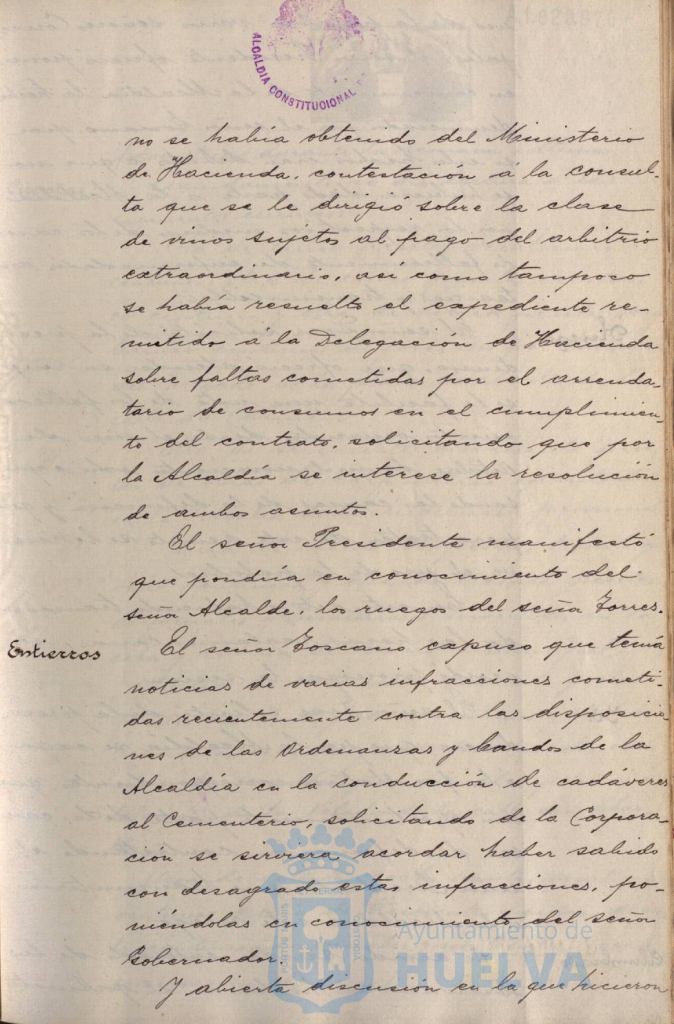 ALCALDIA CONSTITUCIONAL
no se había obtenido del Ministerio
de Hacienda, contestación á la consul-
ta que se le dirigió sobre la clase
de vinos sujetos al pago del arbitrio
extraordinario, así como tampoco
se había resuelto el expediente re-
mitido á la Delegación de Hacienda
sobre faltas cometidas por el arrenda-
tario de consumos en el cumplimien-
to del contrato, solicitando que por
la Alcaldía se interese la resolución
de ambos asuntos.
El señor Presidente manifestó
que pondría en conocimiento del
señor Alcalde, los ruegos del señor Torres.
Entierros
El señor Toscano expuso que tenía
noticias de varias infracciones cometi-
das recientemente contra las disposicio-
nes de las Ordenanzas y bandos de la
Alcaldía en la conducción de cadáveres
al Cementerio, solicitando de la Corpora-
ción se sirviera acordar haber sabido
con desagrado estas infracciones, po-
niéndolas en conocimiento del señor
Gobernador.
Y abierta discusión en la que hicieron
Ayuntamiento de
HUELVA